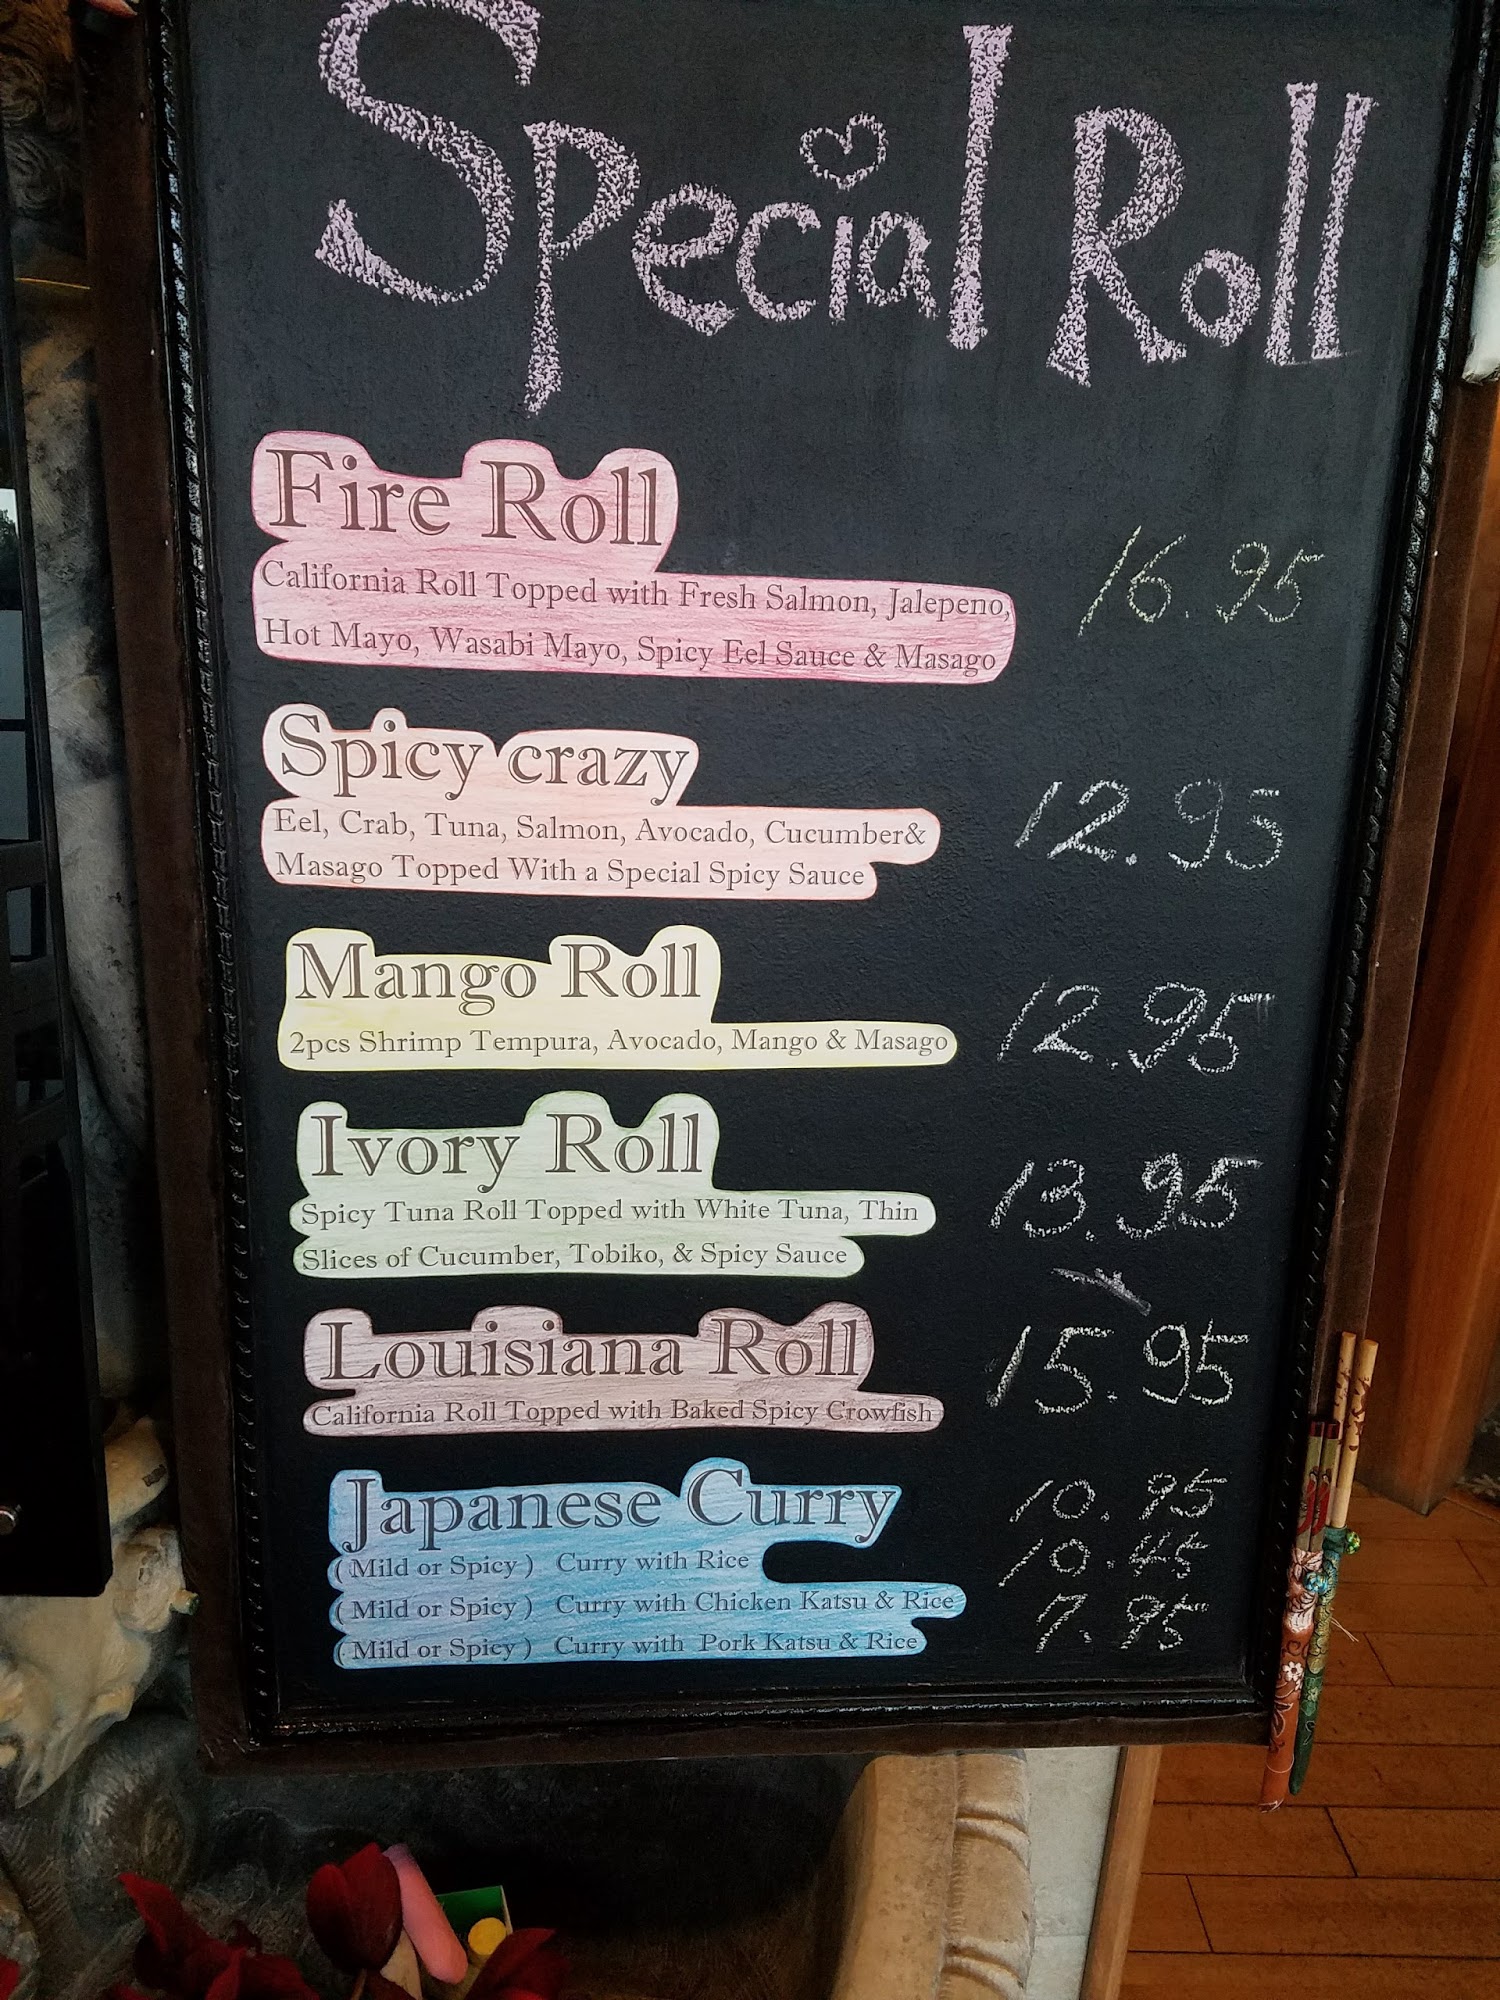 Special Roll
Fire Roll
California Roll Topped with Fresh Salmon, Jalepeno,
Hot Mayo, Wasabi Mayo, Spicy Eel Sauce & Masago
16.95
Spicy crazy
Eel, Crab, Tuna, Salmon, Avocado, Cucumber&
Masago Topped With a Special Spicy Sauce
12.95
Mango Roll
2pcs Shrimp Tempura, Avocado, Mango & Masago
12.95
Ivory Roll
Spicy Tuna Roll Topped with White Tuna, Thin
Slices of Cucumber, Tobiko, & Spicy Sauce
13.95
Louisiana Roll
California Roll Topped with Baked Spicy Crowfish
15.95
Japanese Curry
( Mild or Spicy ) Curry with Rice
( Mild or Spicy ) Curry with Chicken Katsu & Rice
( Mild or Spicy ) Curry with Pork Katsu & Rice
10.95
10.45
7.95